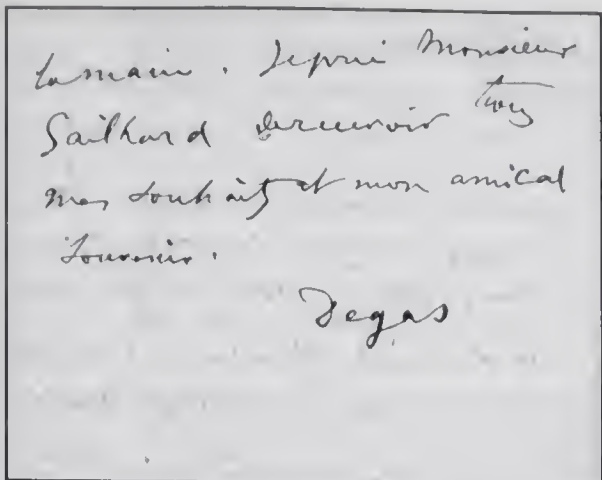 la main. Je prie Monsieur
Gailhard de recevoir tous
mes souhaits et mon amical
souvenir.
Degas